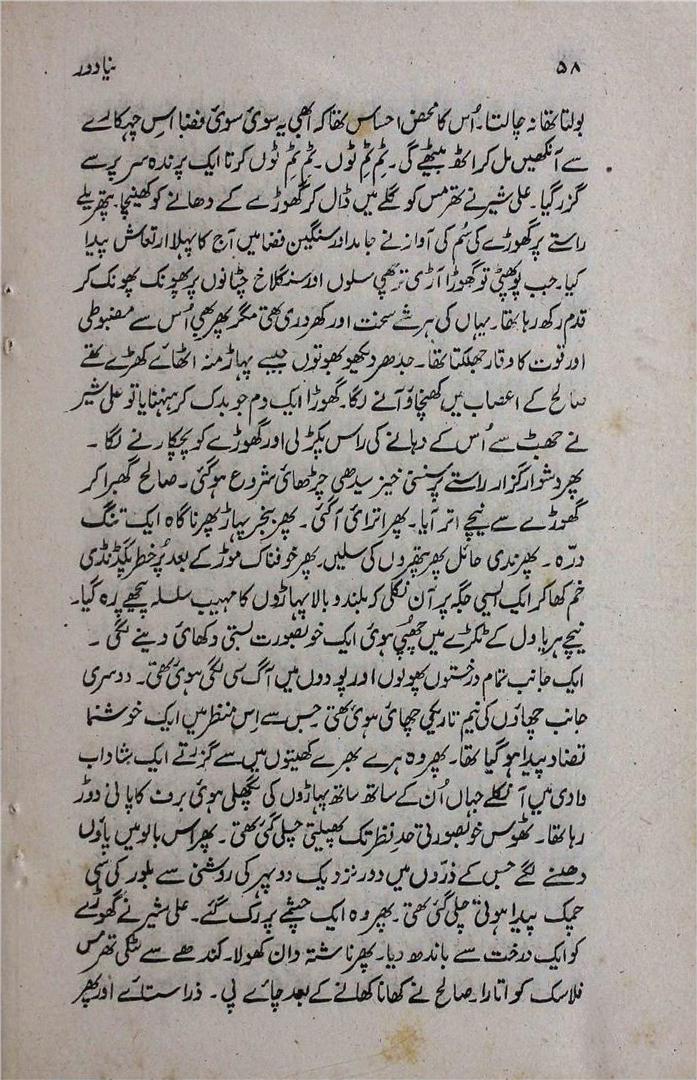 ۵۸ نیا دور
بولتا تھا نہ چالتا۔ اُس کا محض احساس تھا کہ ابھی یہ سوئی سوئی فضا اس چہکارے
سے آنکھیں مل کر اٹھ بیٹھے گی۔ ٹم ٹم ٹوں۔ ٹم ٹم ٹوں کرتا ایک پرندہ سر پر سے
گزر گیا۔ علی شیر نے تھرمس کو گلے میں ڈال کر گھوڑے کے دھانے کو کھینچا۔ پتھریلے
راستے پر گھوڑے کی سُم کی آواز نے جامد اور سنگین فضا میں آج کا پہلا ارتعاش پیدا
کیا۔ جب پو پھٹی تو گھوڑا آڑی ترچھی سلوں اور سنگلاخ چٹانوں پر پھونک پھونک کر
قدم رکھ رہا تھا۔ یہاں کی ہر شے سخت اور کھردری تھی مگر پھر بھی اُس سے مضبوطی
اور قوت کا وقار جھلکتا تھا۔ جدھر دیکھو بھوتوں جیسے پہاڑ منہ اٹھائے کھڑے تھے
صالح کے اعصاب میں کھنچاؤ آنے لگا۔ گھوڑا ایک دم جو بدک کر ہنہنایا تو علی شیر
نے جھٹ سے اُس کے دہانے کی راس پکڑ لی اور گھوڑے کو پچکارنے لگا ۔
پھر دشوار گزار راستے پر سنسنی خیز سیدھی چڑھائی شروع ہوگئی۔ صالح گھبرا کر
گھوڑے سے نیچے اتر آیا۔ پھر اترائی آگئی ۔ پھر بنجر پہاڑ پھر ناگاہ ایک تنگ
درّہ ۔ پھر ندی حائل پھر پتھروں کی سلیں۔ پھر خوفناک موڑ کے بعد پُر خطر پگڈنڈی
خم کھا کر ایک ایسی جگہ پر آن نکلی کہ بلند و بالا پہاڑوں کا مہیب سلسلہ پیچھے رہ گیا۔
نیچے ہریاول کے ٹکڑے میں چھپی ہوئی ایک خوبصورت بستی دکھائی دینے لگی ۔
ایک جانب تمام درختوں پھولوں اور پودوں میں آگ سی لگی ہوئی تھی۔ دوسری
جانب چھاؤں کی نیم تاریکی چھائی ہوئی تھی جس سے اِس منظر میں ایک خوشنما
تضاد پیدا ہو گیا تھا۔ پھر وہ ہرے بھرے کھیتوں میں سے گزرتے ایک شاداب
وادی میں آ نکلے جہاں اُن کے ساتھ ساتھ پہاڑوں کی پگھلی ہوئی برف کا پانی دوڑ
رہا تھا۔ ٹھوس خوبصورتی حدِ نظر تک پھیلتی چلی گئی تھی۔ پھر اس بالو میں پاؤں
دھنسنے لگے جس کے ذرّوں میں دور نزدیک دوپہر کی روشنی سے بلور کی سی
چمک پیدا ہوتی چلی گئی تھی۔ پھر وہ ایک چشمے پر رک گئے۔ علی شیر نے گھوڑے
کو ایک درخت سے باندھ دیا۔ پھر ناشتہ دان کھولا۔ کندھے سے لٹکی تھرمس
فلاسک کو اتارا۔ صالح نے کھانا کھانے کے بعد چائے پی ۔ ذرا ستائے اور پھر